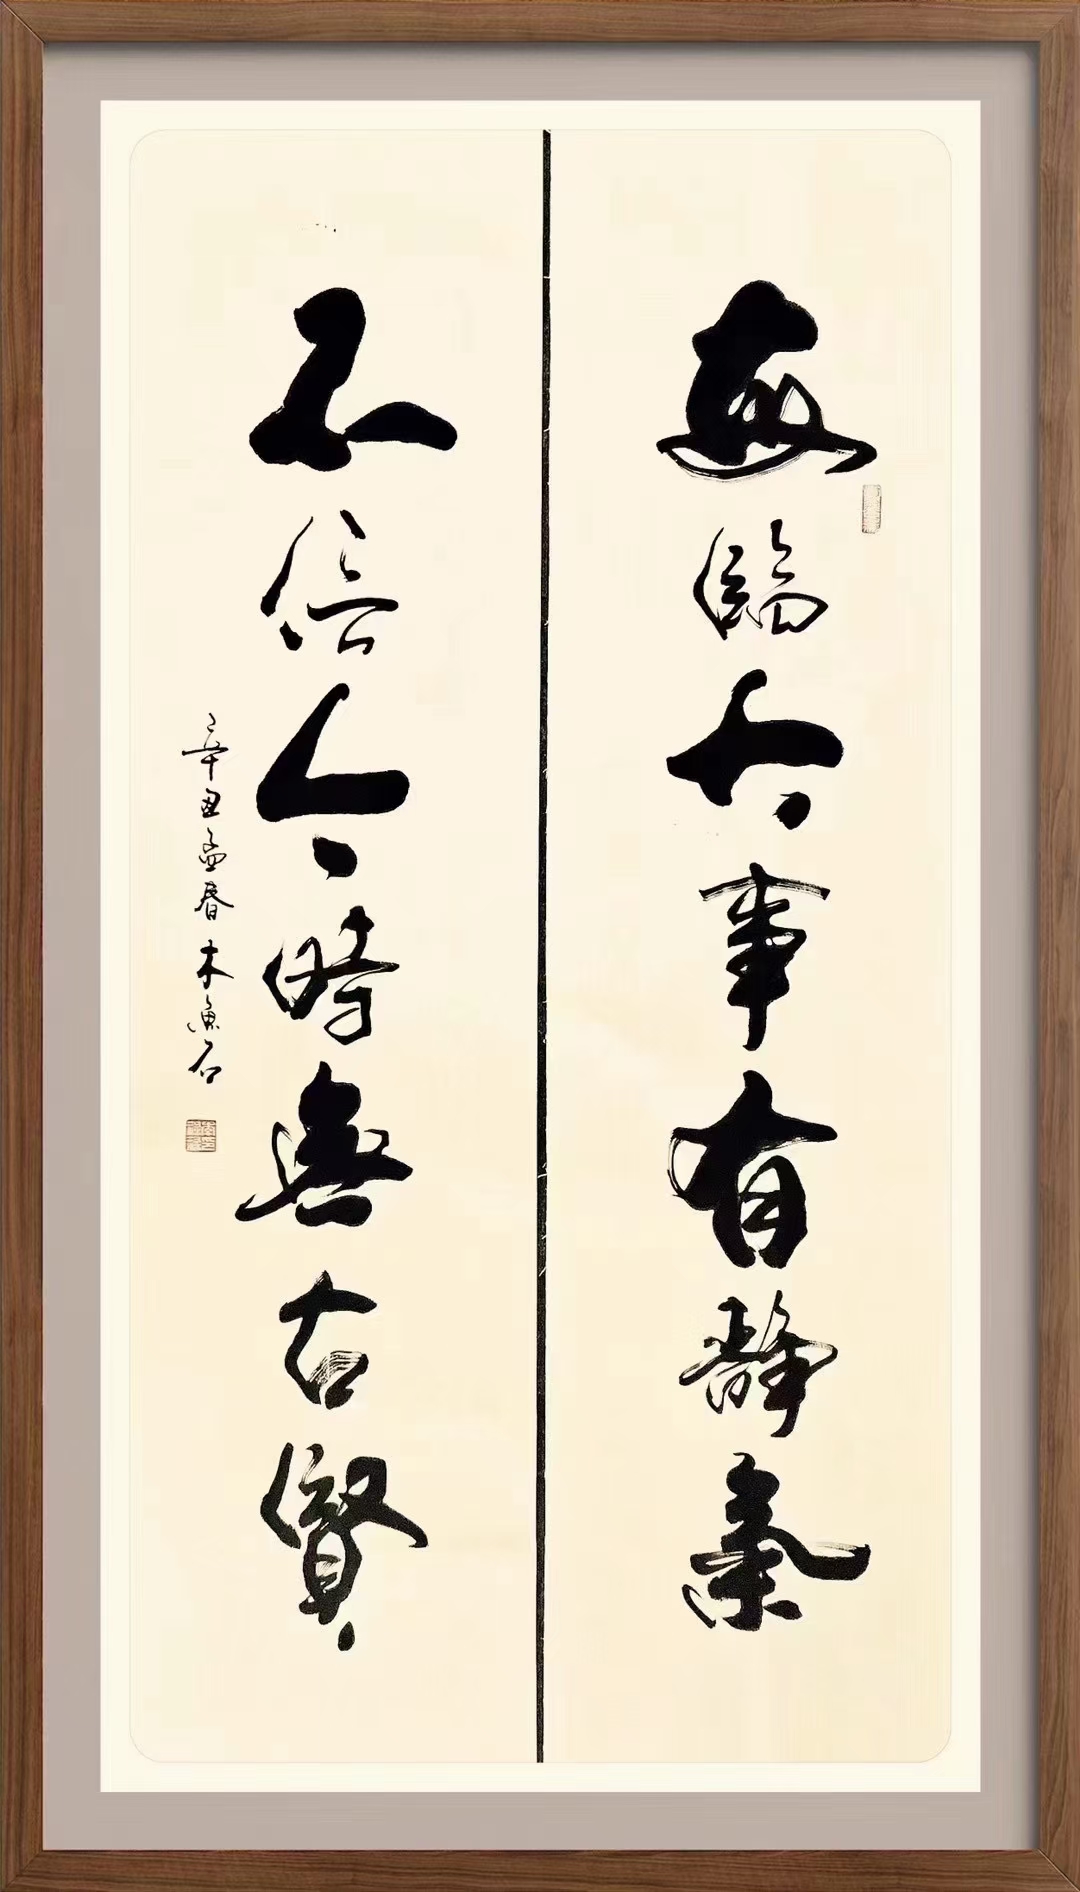 每臨大事有靜氣
不信今時無古賢
辛丑孟春木魚石